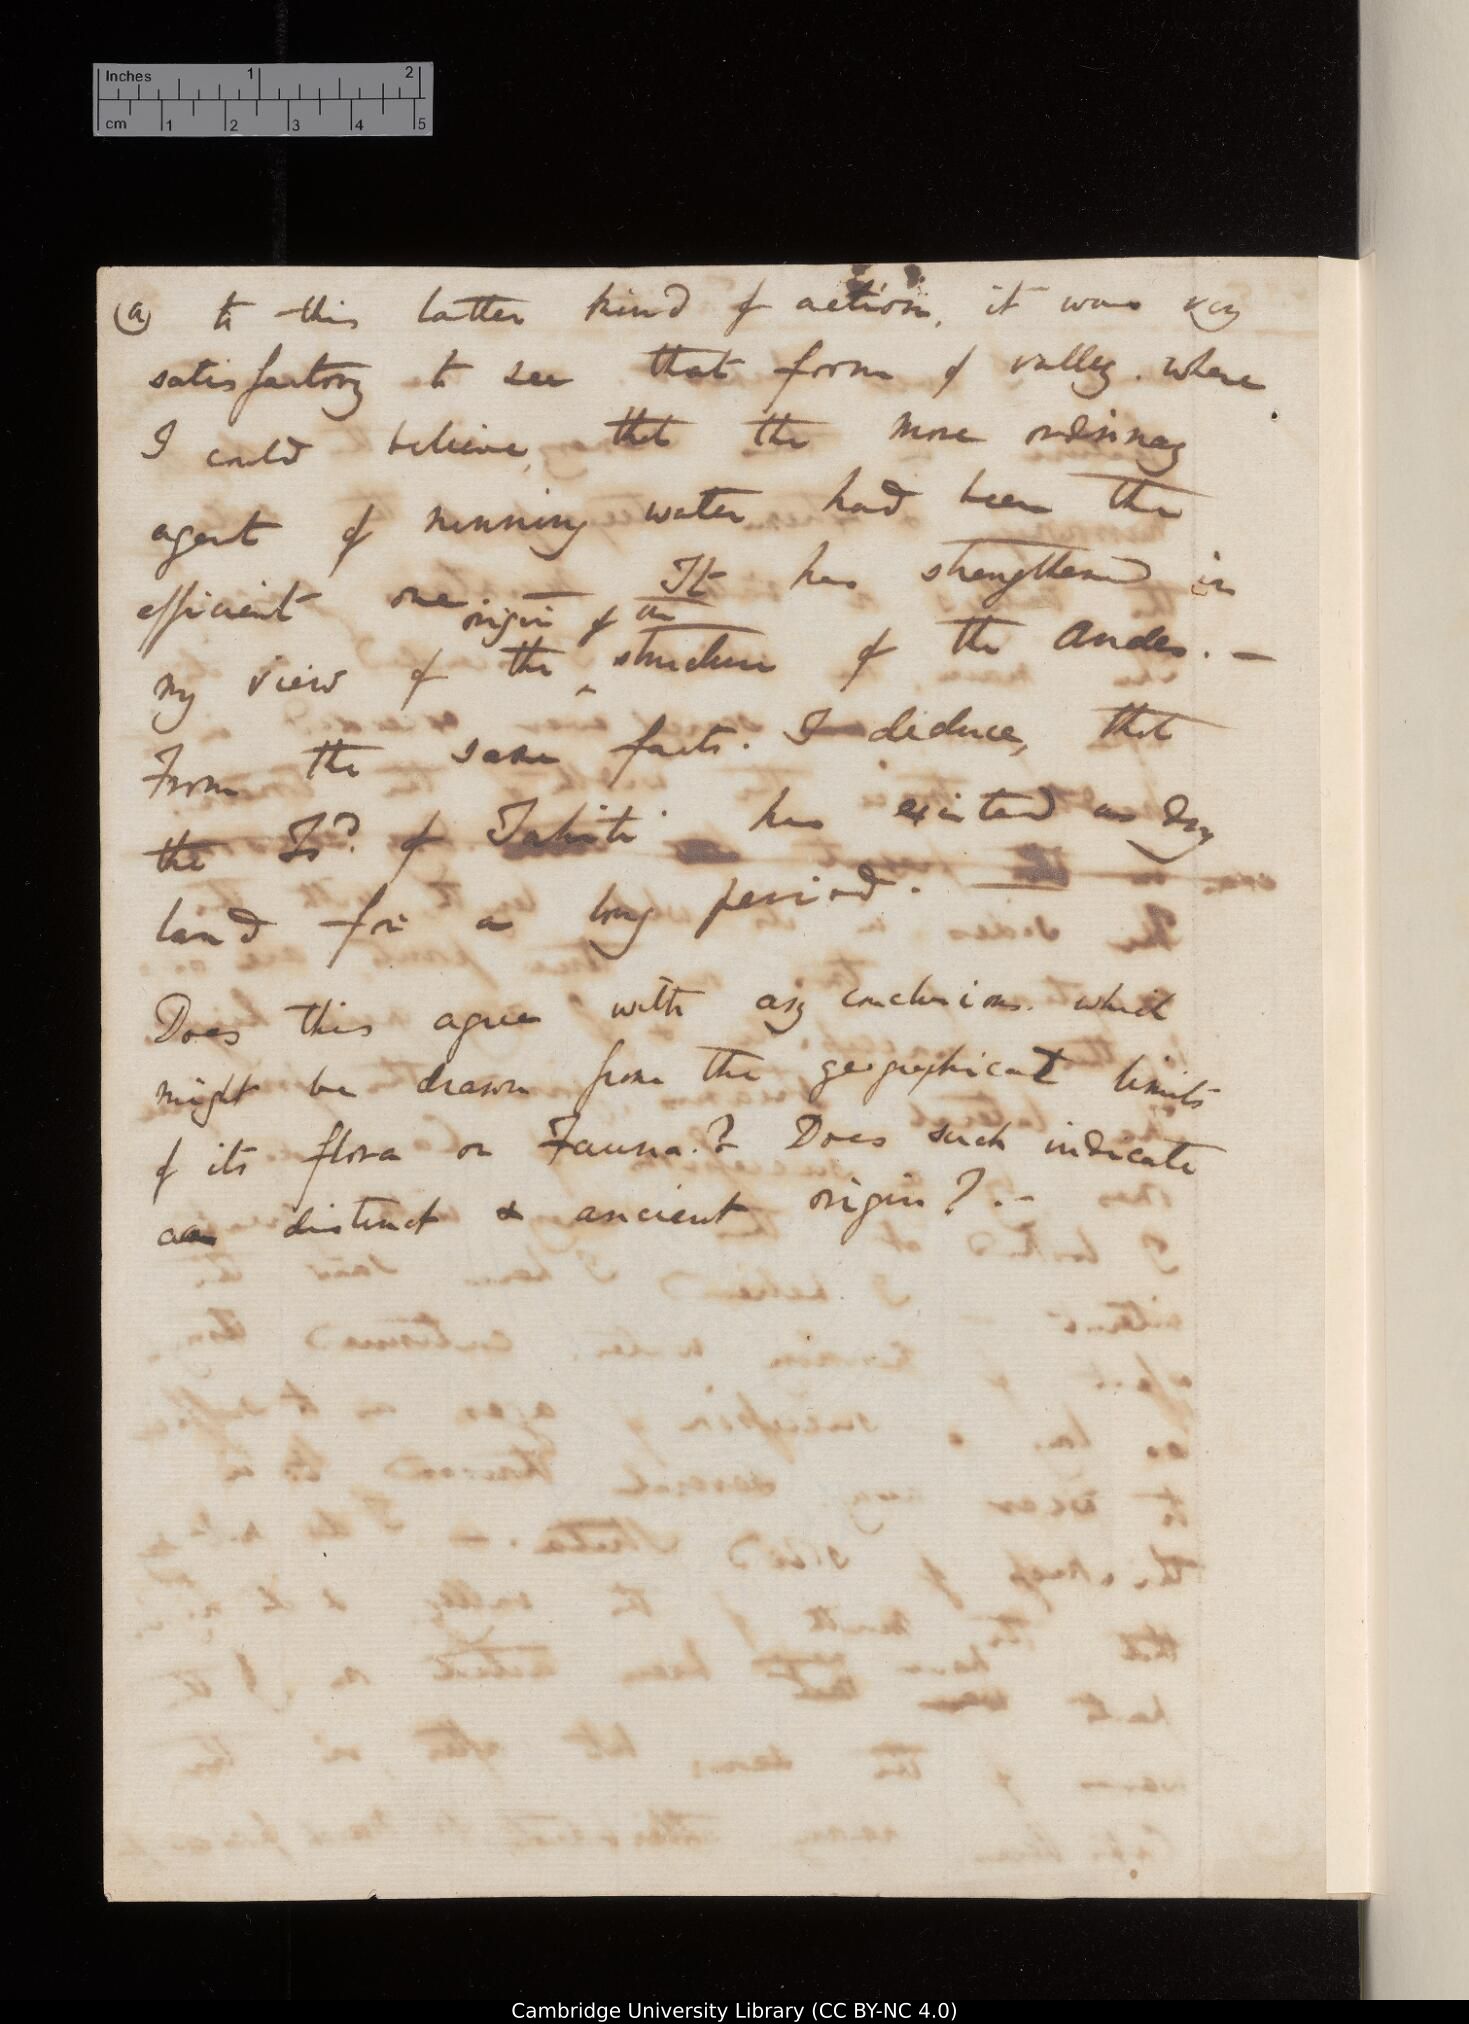 Inches 1 2
cm 1 2 3 4 5
(a) to this latter kind of action, it was very
satisfactory to see that form of valley. where
I could believe, that the more ordinary
agent of running water had been the
efficient one. — It has strengthened in
origin of an
my view of the ^ structure of the Andes. —
From the same facts. I deduce, that
the Isd. of Tahiti has existed as dry
land for a long period. —
Does this agree with any conclusions. which
might be drawn from the geographical limits
of its flora or Fauna.? Does such indicate
a distinct & ancient origin? . —
Cambridge University Library (CC BY-NC 4.0)